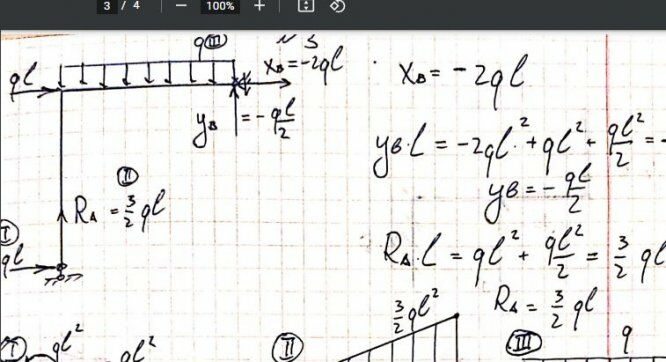 3 / 4
100%
q III
N 3
ql
xB = -2ql
yB = -ql/2
II
RA = 3/2 ql
I
ql
xB = -2ql
yB·l = -2ql² + ql² + ql²/2 = -
yB = -ql/2
RA·l = ql² + ql²/2 = 3/2 ql
RA = 3/2 ql
I
ql²
ql²
II
3/2 ql²
III
q